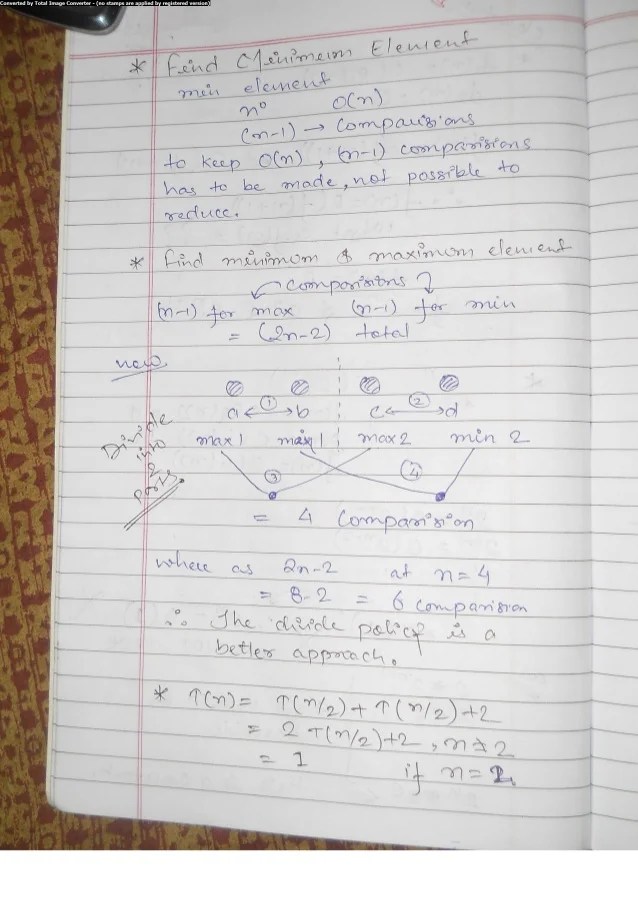 Converted by Total Image Converter - (no stamps are applied by registered version)
* Find Minimum Element
min element
n⁰ O(n)
(n-1) → Comparisions
to keep O(n), (n-1) comparisions
has to be made, not possible to
reduce.
* find minimum & maximum element
comparisions
(n-1) for max (n-1) for min
= (2n-2) total
new
a ① b c ② d
Divide into 2 parts.
max 1 min 1 max 2 min 2
③ ④
= 4 Comparision
where as 2n-2 at n=4
= 8-2 = 6 comparision
∴ The divide policy is a
better approach.
* T(n) = T(n/2) + T(n/2) +2
= 2T(n/2)+2, n≠2
= 1 if n=2